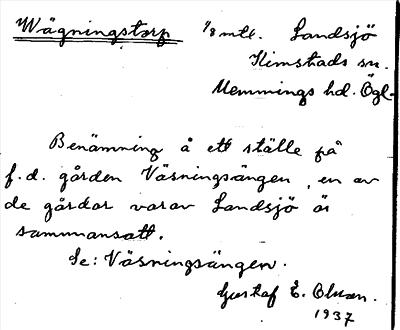 Wägningstorp 1/8 mtl. Landsjö
Kimstads sn.
Memmings hd. Ögl.
Benämning å ett ställe på
f.d. gården Väsningsängen, en av
de gårdar varav Landsjö är
sammansatt.
Se: Väsningsängen.
Gustaf E. Olsson.
1937